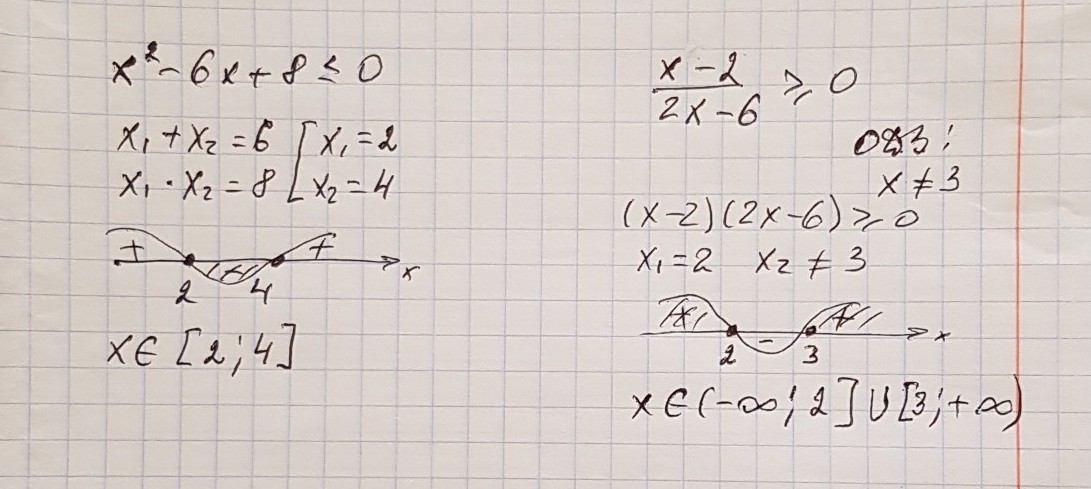 x² - 6x + 8 ≤ 0
x₁ + x₂ = 6 [ x₁ = 2
x₁ · x₂ = 8 [ x₂ = 4
+ - + x
2 4
x ∈ [2; 4]
(x - 2)/(2x - 6) ≥ 0
ОДЗ:
x ≠ 3
(x - 2)(2x - 6) ≥ 0
x₁ = 2 x₂ ≠ 3
+ - + x
2 3
x ∈ (-∞; 2] ∪ [3; +∞)